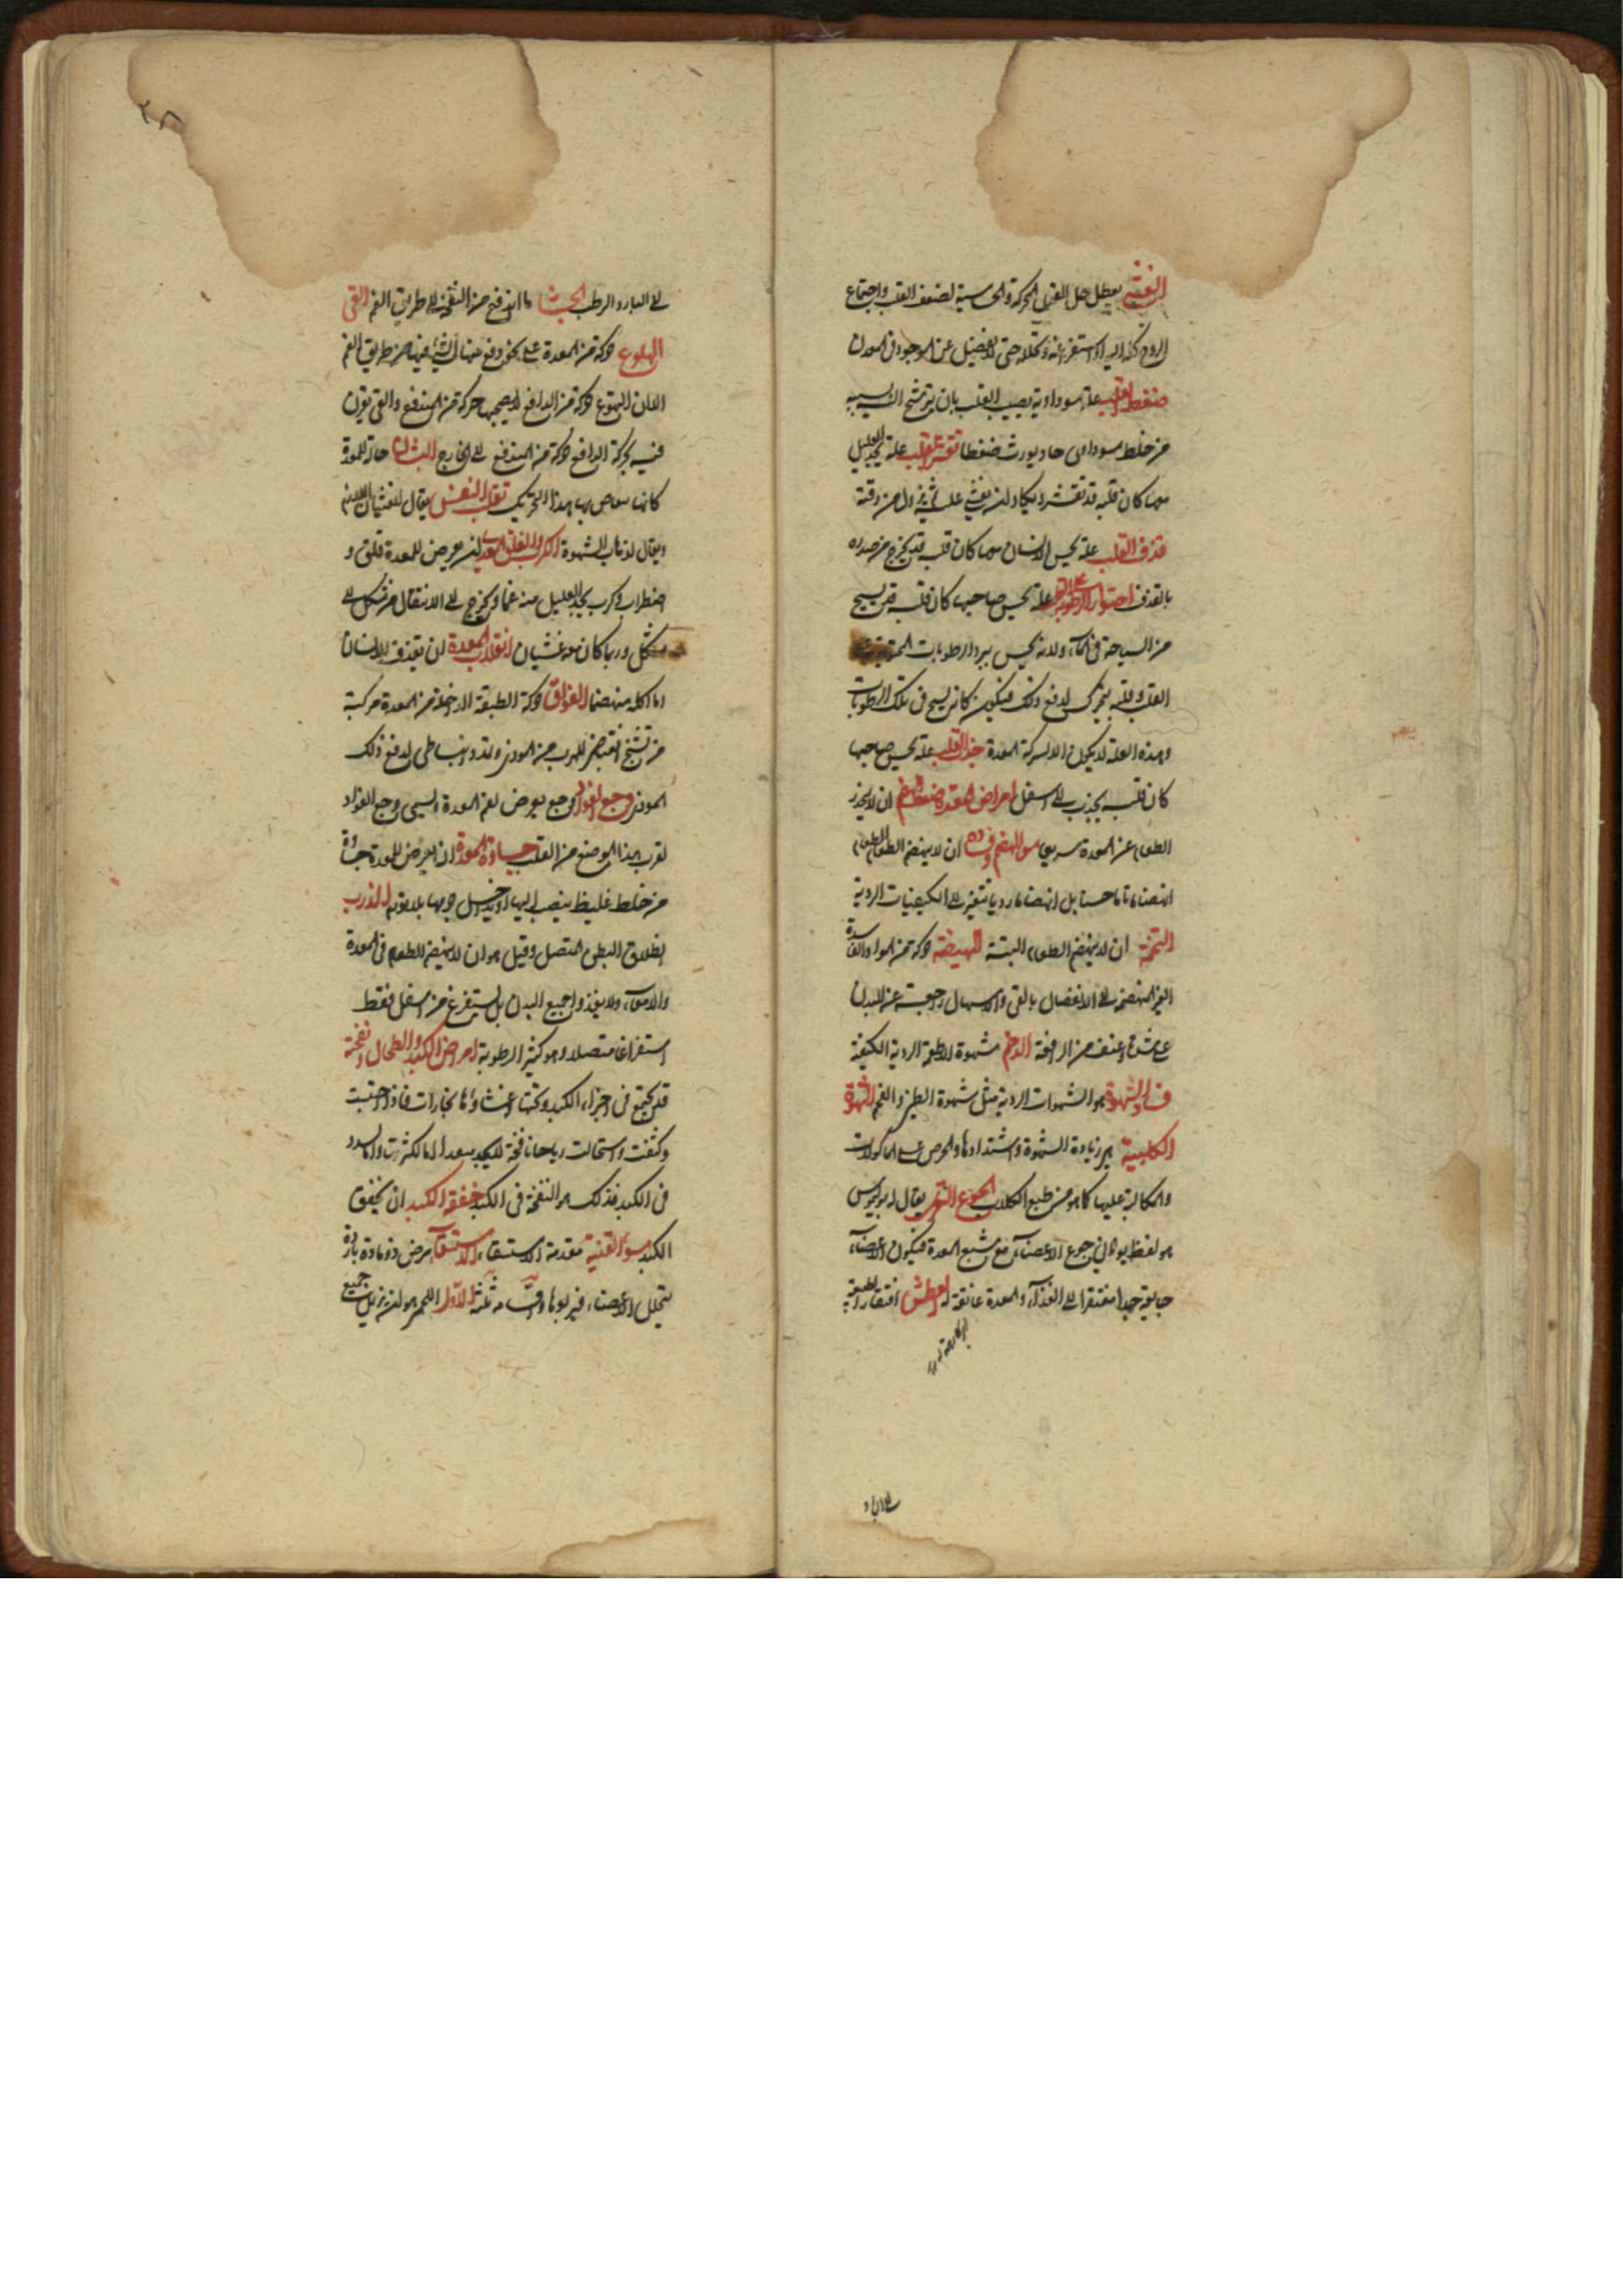 الغشي تعطل جل القوى المحركة والحساسة لضعف القلب واجتماع
الروح كله اليه او استفراغه وتحلله حتى لا يفضل عن الموجود في المعدن
ضغط القلب علة سوداوية يصيب القلب بان يترشح اليه يسير
من خلط سوداوى حاد يورث ضغطا تقشر القلب علة يجد العليل
معها كان قلبه قد تقشر ويكاد ان يغشى عليه ثم يزول من وقته
قذف القلب علة يحس الانسان معها كان قلبه قد يخرج من صدره
بالقذف احتواء الرطوبة على القلب علة يحس صاحبها كان قلبه يسبح
من السباحة في الماء ولانه يحس ببرد الرطوبات المحتوية على
القلب وقلبه يتحرك لدفع ذلك فيكون كانه يسبح في تلك الرطوبات
وهذه العلة لا يكون الا لشركة المعدة جذب القلب علة يحس صاحبها
كان قلبه يجذب الى اسفل امراض المعدة ضعف الهضم ان لا ينحدر
الطعام عن المعدة سريعا سوء الهضم وفساده ان لا ينهضم الطعام
انهضاما تاما حسنا بل انهضاما رديا يتغير الى الكيفيات الردية
التخمة ان لا ينهضم الطعام البتة الهيضة حركة من المواد الفاسدة
الغير المنهضمة الى الانفصال بالقى والاسهال راجعة عن البدن
على شدة وعنف من الدافعة الوحم شهوة الاطعمة الردية الكيفية
فساد الشهوة هو الشهوات الردية مثل شهوة الطين والفحم الشهوة
الكلبية هي زيادة الشهوة واشتدادها والحرص على الماكولات
والمكالبة عليها كما هو من طبع الكلاب الجوع البقري يقال له بوليموس
هو لفظ يوناني جوع الاعضاء مع شبع المعدة فيكون الاعضاء
جايعة جدا مفتقرا الى الغذاء والمعدة عائفة له العطش افتقار الطبيعة
الى البارد
الى البارد الرطب الجشا ما اندفع من النفخ الى طريق الفم القى
التهوع حركة من المعدة على دفع منها لشيء فيها من طريق الفم
الا ان التهوع حركة من الدافع لا يصحبها حركة من المندفع والقى تقترن
فيه بحركة الدافع حركة من المندفع الى الخارج الغثيان حالة للمعدة
كانها يتقاضى بها هذا التحريك تقلب النفس يقال للغثيان اللازم
ويقال لذهاب الشهوة الكرب والقلق المعدي ان يعرض للمعدة قلق و
اضطراب وكرب يجد العليل منه غما ويحوج الى الانتقال من شكل الى
شكل وربما كان معه غشيان انقلاب المعدة ان يقذف الانسان
اذا اكله منهضما الفواق حركة الطبقة الداخلة من المعدة مركبة
من تشنج انقباضي للهرب من الموذي وتمدد انبساطي لدفع ذلك
الموذي وجع الفواد وجع يعرض لفم المعدة ويسمى وجع الفواد
لقرب هذا الموضع من القلب جساوة المعدة ان يعرض للمعدة جساوة
من خلط غليظ ينصب اليها الذرب
انطلاق البطن المتصل وقيل هو ان لا ينهضم الطعام في المعدة
والامعاء ولا ينفذ في جميع البدن بل يستفرغ من اسفل فقط
استفراغا متصلا وهو كثير الرطوبة امراض الكبد والطحال النفخة
قد يجتمع في اجزاء الكبد وتحت غشائها بخارات فاذا احتبست
وكثفت واستحالت رياحا نافخة لا يجد منفذا اما لكثرتها واما لسدد
في الكبد فذلك هو النفخة في الكبد خفقة الكبد ان يخفق
الكبد سوء القنية مقدمة الاستسقاء الاستسقاء مرض ذو مادة باردة
يتخلل الاعضاء فيربو بها واقسامه ثلثة الاول اللحمي هو ان يربل جميع